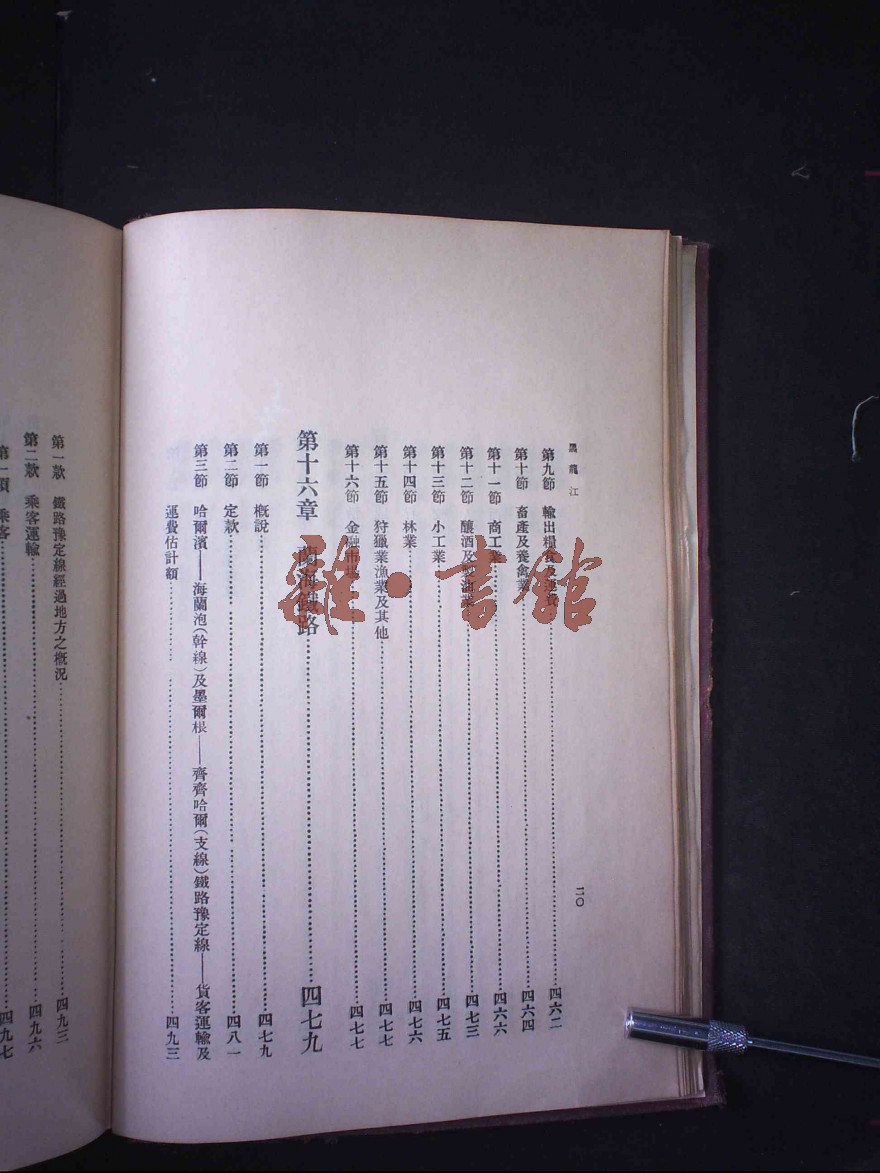 黑龍江
二〇
第九節 輸出糧食及運費 四六二
第十節 畜產及養禽業 四六四
第十一節 商工業 四六六
第十二節 釀酒及製油業 四七三
第十三節 小工業 四七五
第十四節 林業 四七六
第十五節 狩獵業漁業及其他 四七七
第十六節 金融市場 四七七
第十六章 蘭海鐵路 四七九
第一節 概說 四七九
第二節 定款 四八一
第三節 哈爾濱——海蘭泡(幹線)及墨爾根——齊齊哈爾(支線)鐵路豫定線——貨客運輸及
運費估計額 四九三
第一款 鐵路豫定線經過地方之概況 四九三
第二款 乘客運輸 四九六
第一項 乘客 四九七
雜·書館